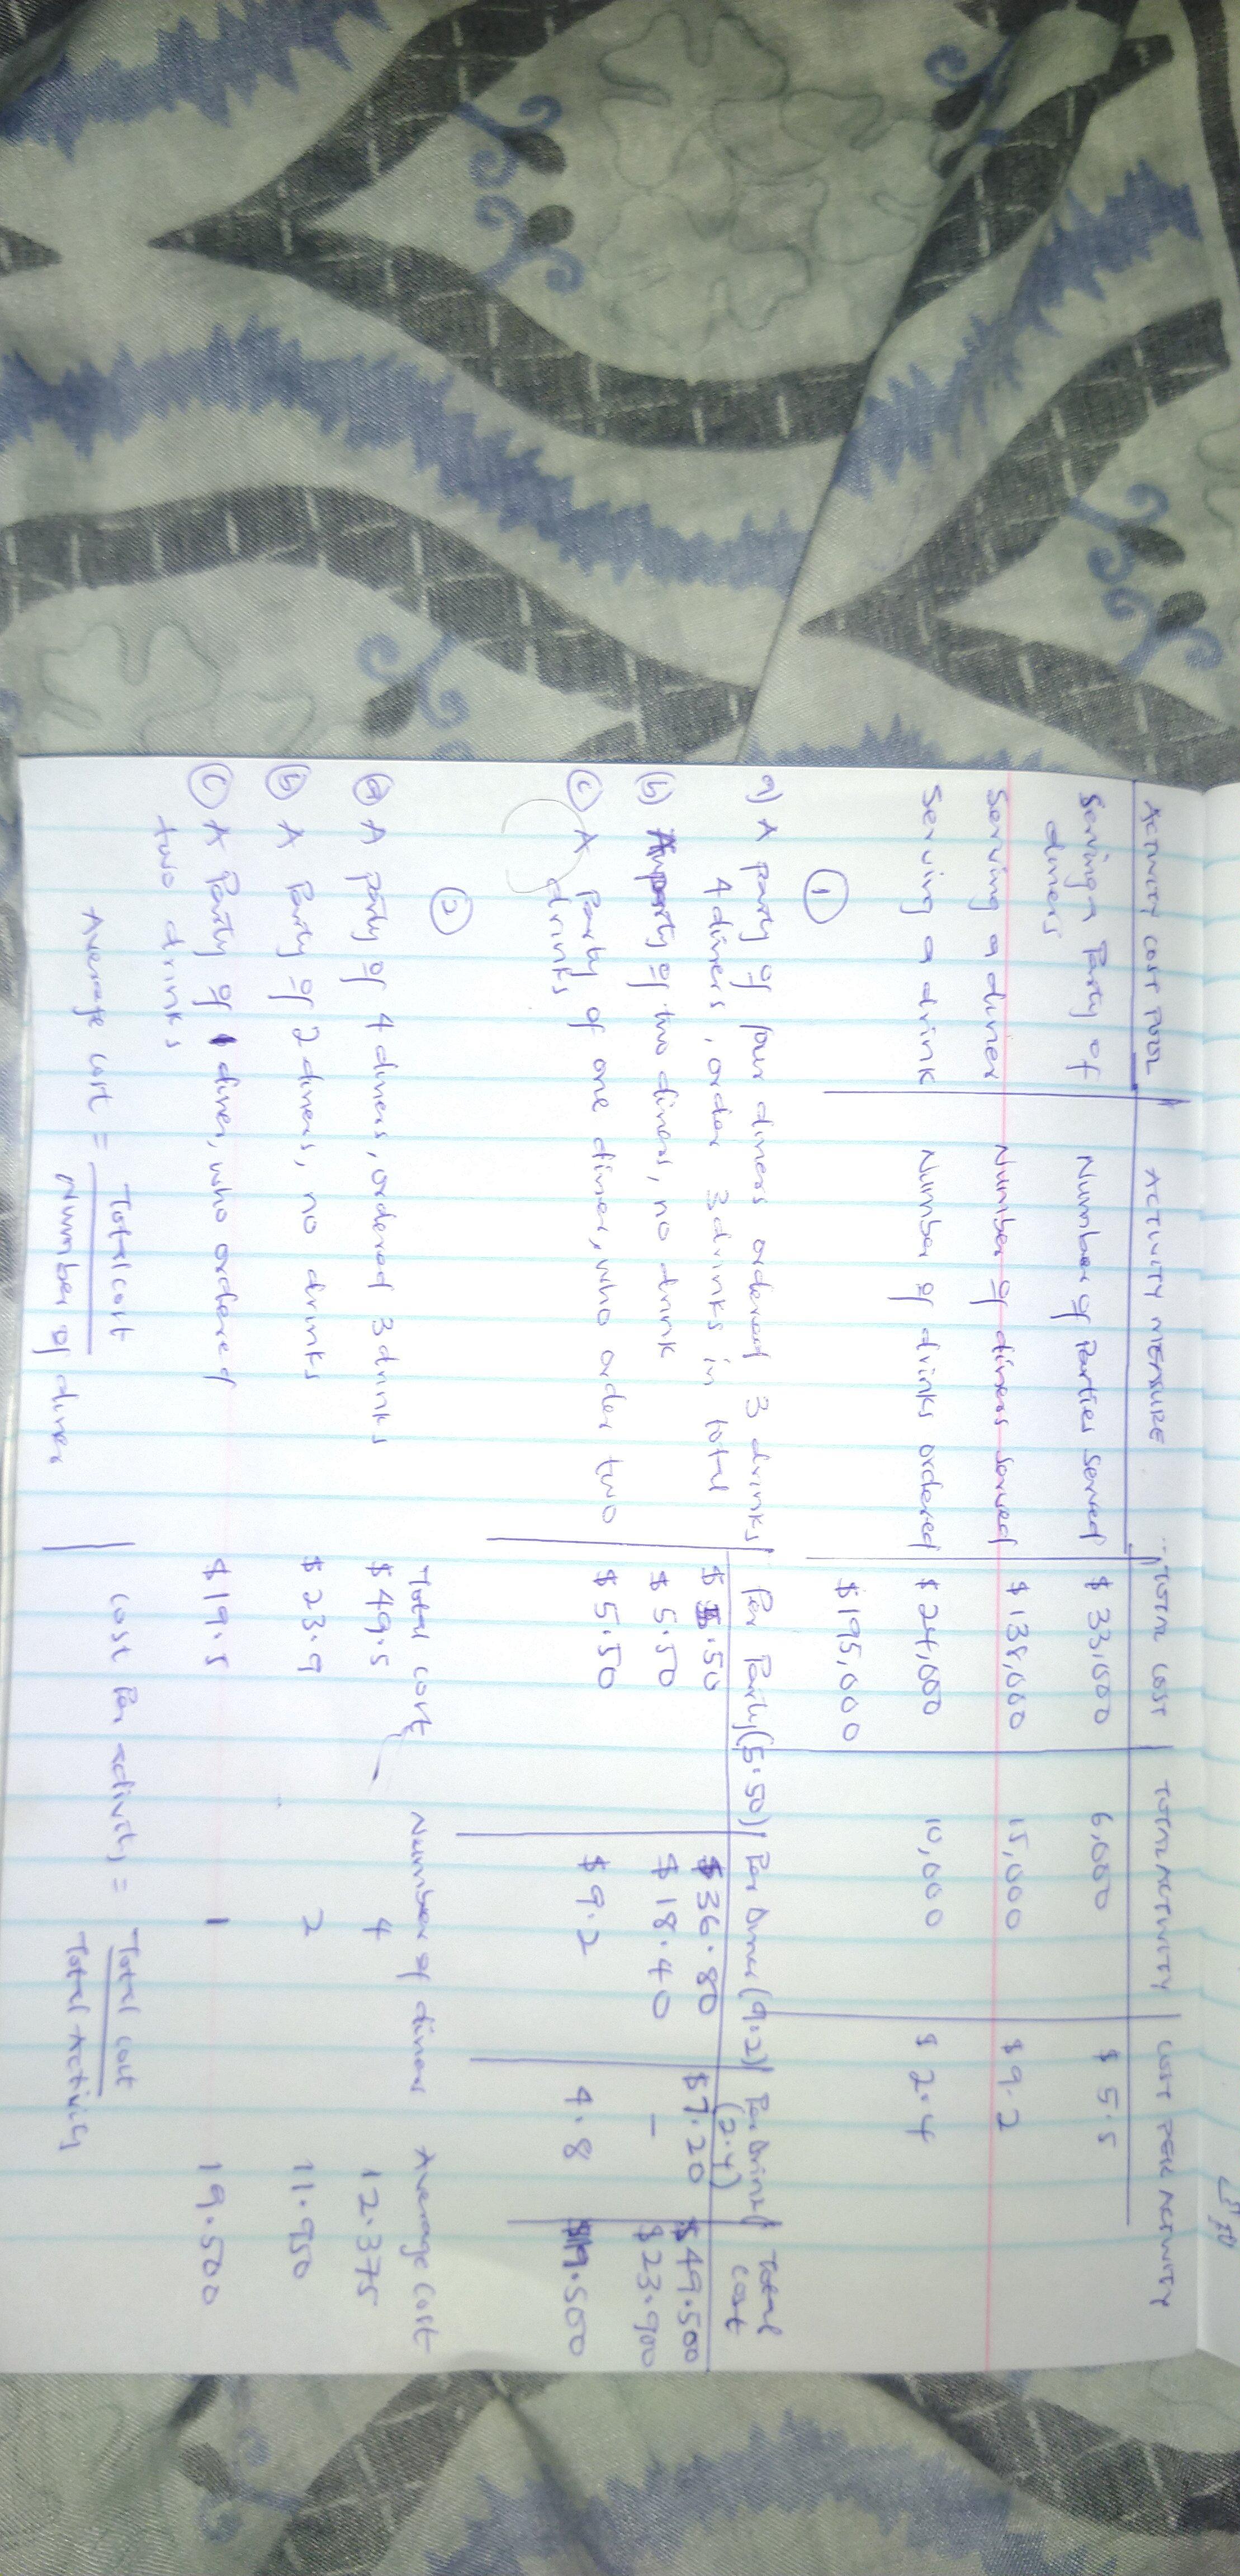 ACTIVITY COST POOL ACTIVITY MEASURE TOTAL COST TOTAL ACTIVITY COST PER ACTIVITY
Serving a Party of Number of Parties Served $ 33,000 6,000 $ 5.5
diners
Serving a diner Number of diners served $ 138,000 15,000 $ 9.2
Serving a drink Number of drinks ordered $ 24,000 10,000 $ 2.4
$195,000
1
a) A party of four diners ordered 3 drinks Per Party (5.50) Per Diner (9.2) Per Drink Total
(2.4) cost
4 diners, order 3 drinks in total $ 5.50 $ 36.80 $7.20 $49.500
(b) A party of two diners, no drink $ 5.50 $ 18.40 - $23.900
(c) A party of one diner, who order two $ 5.50 $ 9.2 4.8 $19.500
drinks
2
Total cost Number of diners Average cost
(a) A party of 4 diners, ordered 3 drinks $ 49.5 4 12.375
(b) A Party of 2 diners, no drinks $ 23.9 2 11.950
(c) A Party of 1 diner, who ordered $ 19.5 1 19.500
two drinks
Average cost = Total cost Cost Per activity = Total cost
Number of diner Total Activity